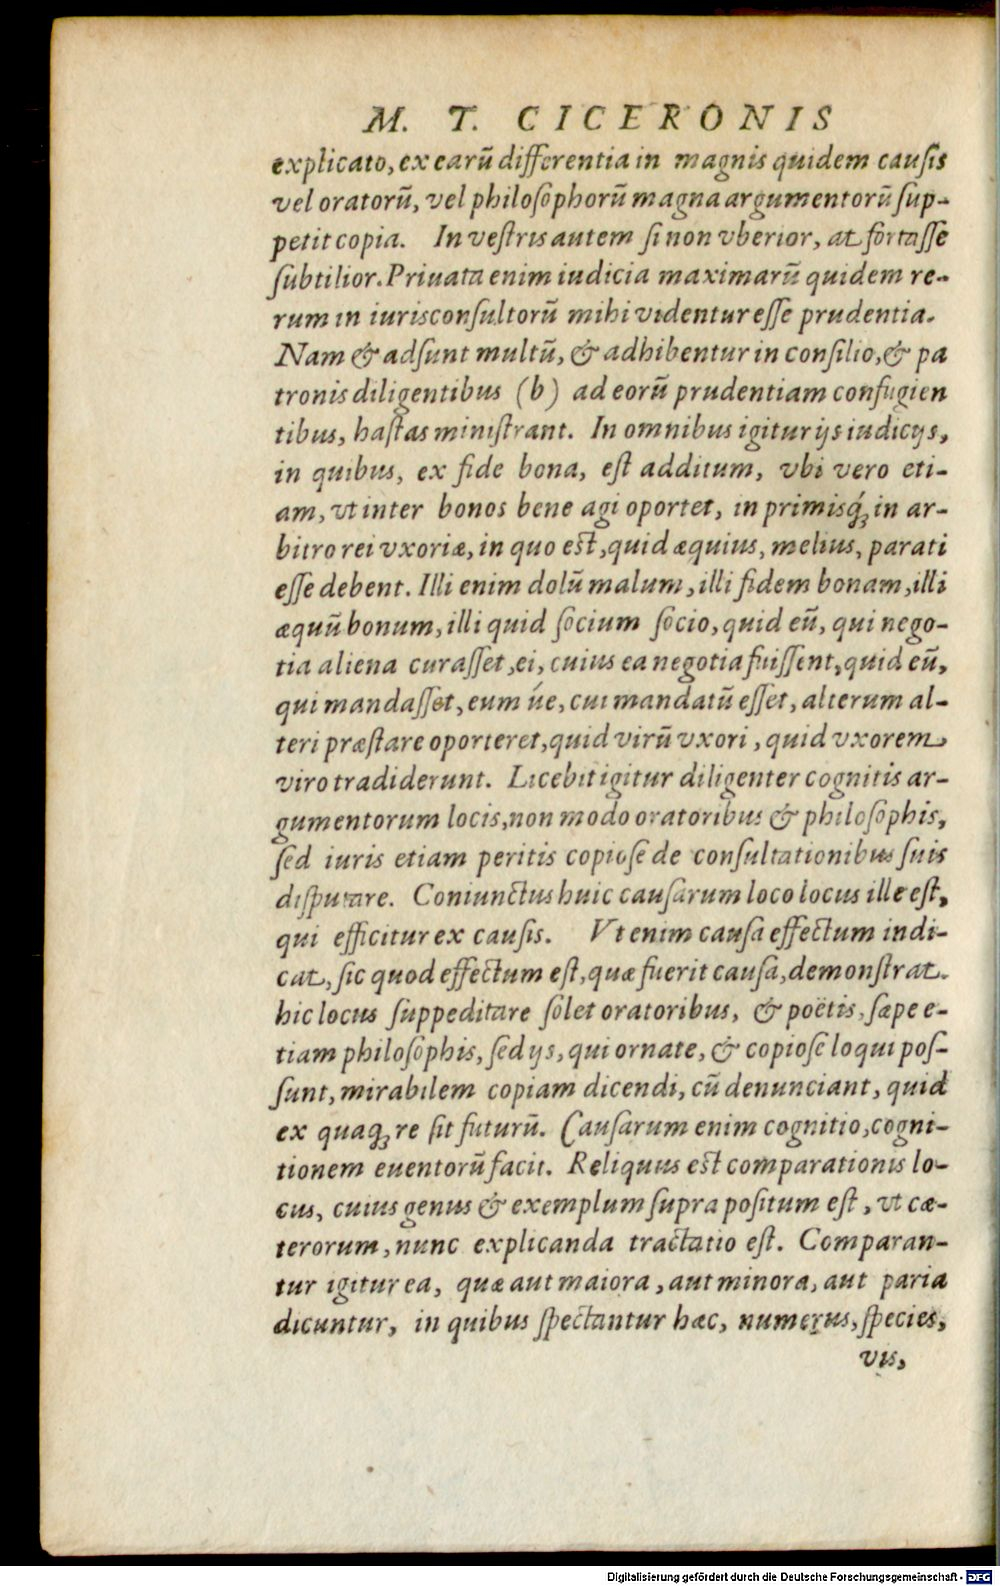 M. T. CICERONIS
explicato, ex earũ differentia in magnis quidem causis
vel oratorũ, vel philoſophorũ magna argumentorũ ſup-
petit copia. In veſtris autem ſi non vberior, at fortaſſe
ſubtilior. Priuata enim iudicia maximarũ quidem re-
rum in iuriſconſultorũ mihi videntur eſſe prudentia.
Nam & adſunt multũ, & adhibentur in conſilio, & pa
tronis diligentibus (b) ad eorũ prudentiam confugien
tibus, haſtas miniſtrant. In omnibus igitur ijs iudicijs,
in quibus, ex fide bona, eſt additum, vbi vero eti-
am, vt inter bonos bene agi oportet, in primisq́ꝫ in ar-
bitro rei vxoriæ, in quo est, quid æquius, melius, parati
eſſe debent. Illi enim dolũ malum, illi fidem bonam, illi
æquũ bonum, illi quid ſocium ſocio, quid eũ, qui nego-
tia aliena curaſſet, ei, cuius ea negotia fuiſſent, quid eũ,
qui mandaſſet, eum úe, cui mandatũ eſſet, alterum al-
teri præſtare oporteret, quid virũ vxori, quid vxorem
viro tradiderunt. Licebit igitur diligenter cognitis ar-
gumentorum locis, non modo oratoribus & philoſophis,
ſed iuris etiam peritis copioſe de conſultationibus ſuis
diſputare. Coniunctus huic cauſarum loco locus ille eſt,
qui efficitur ex cauſis. Vt enim cauſa effectum indi-
cat, ſic quod effectum eſt, quæ fuerit cauſa, demonſtrat.
hic locus ſuppeditare ſolet oratoribus, & poëtis, ſæpe e-
tiam philoſophis, ſed ijs, qui ornate, & copioſe loqui poſ-
ſunt, mirabilem copiam dicendi, cũ denunciant, quid
ex quaqꝫ re ſit futurũ. Cauſarum enim cognitio, cogni-
tionem euentorũ facit. Reliquus est comparationis lo-
cus, cuius genus & exemplum ſupra poſitum eſt, vt cæ-
terorum, nunc explicanda tractatio eſt. Comparan-
tur igitur ea, quæ aut maiora, aut minora, aut paria
dicuntur, in quibus ſpectantur hæc, numerus, ſpecies,
vis,
Digitalisierung gefördert durch die Deutsche Forschungsgemeinschaft - DFG